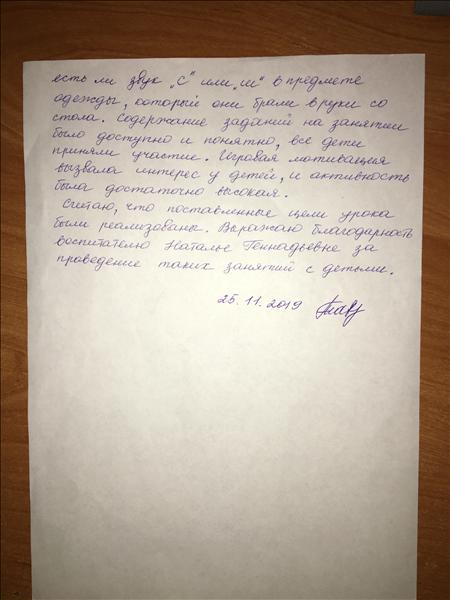 есть ли звук „С“ или „ш“ в предмете
одежды, который они брали в руки со
стола. Содержание заданий на занятии
было доступно и понятно, все дети
приняли участие. Игровая мотивация
вызвала интерес у детей, и активность
была достаточно высокая.
Считаю, что поставленные цели урока
были реализованы. Выражаю благодарность
воспитателю Наталье Геннадьевне за
проведение таких занятий с детьми.
25.11.2019